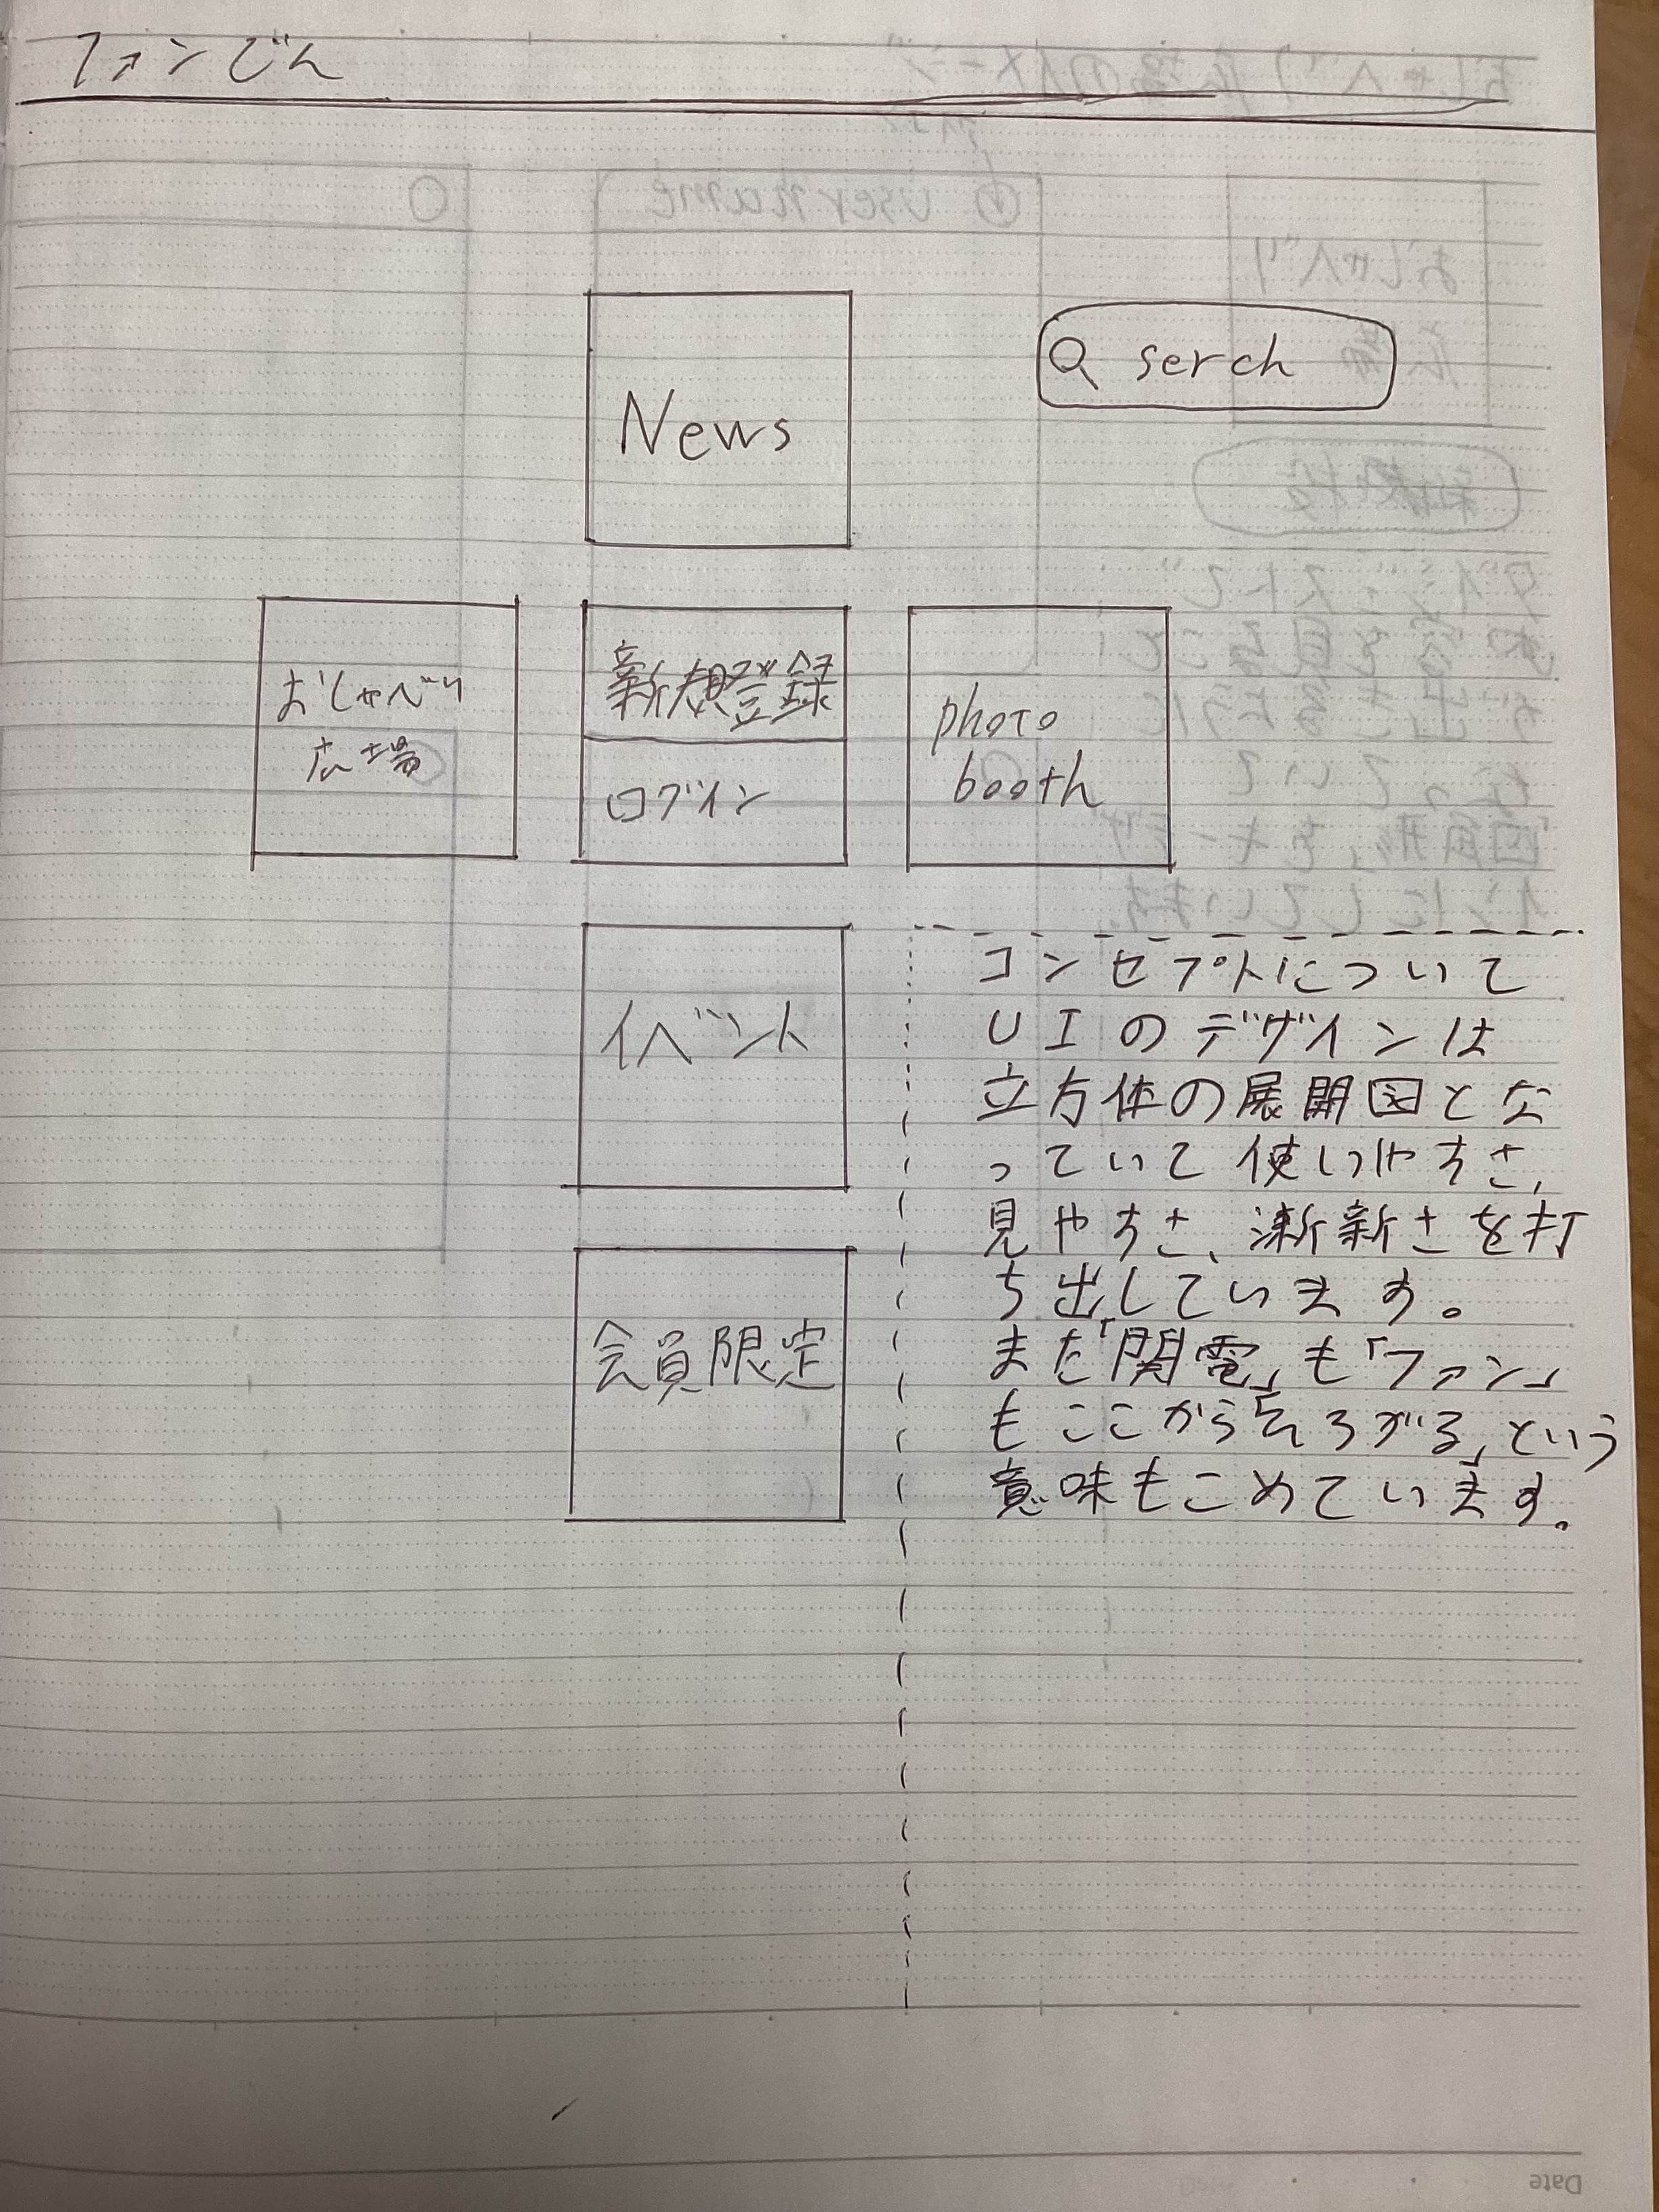 ファンでん
News
serch
おしゃべり
広場
新規登録
ログイン
photo
booth
イベント
会員限定
コンセプトについて
UIのデザインは
立方体の展開図とな
っていて使いやすさ、
見やすさ、漸新さを打
ち出しています。
また「関電」も「ファン」
もここから「ひろがる」という
意味もこめています。
Date